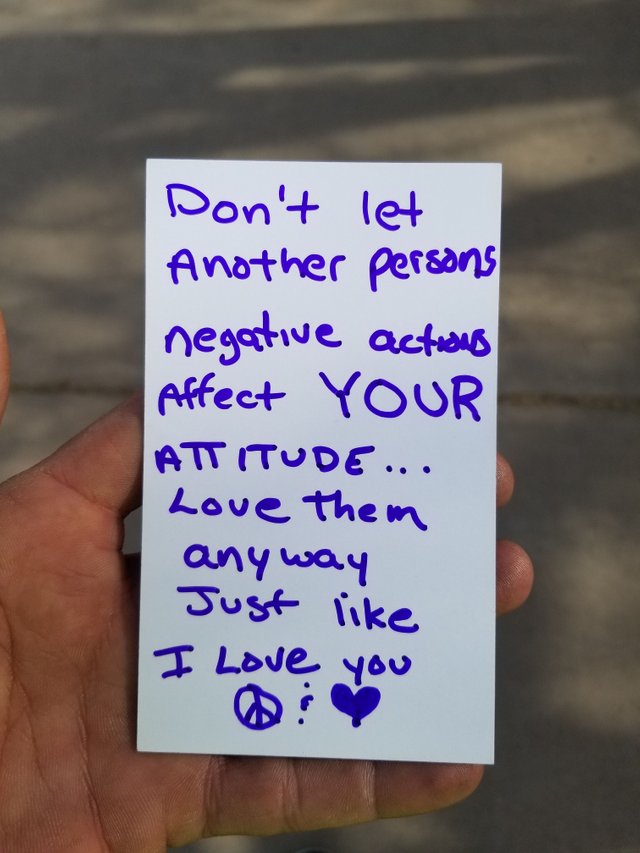 Don't let
Another persons
negative actions
Affect YOUR
ATTITUDE...
Love them
anyway
Just like
I Love you
☮ & ♥